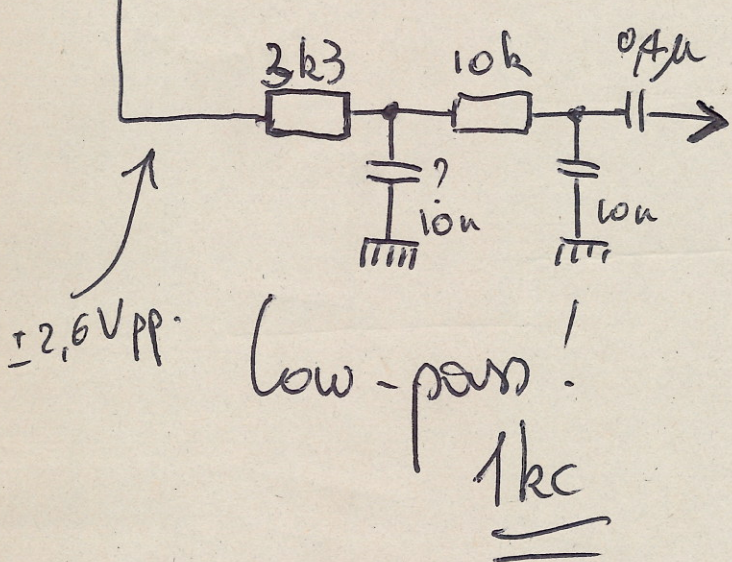 3k3
10k
0,1μ
?
10n
10n
±2,6Vpp.
Low-pass!
1kc